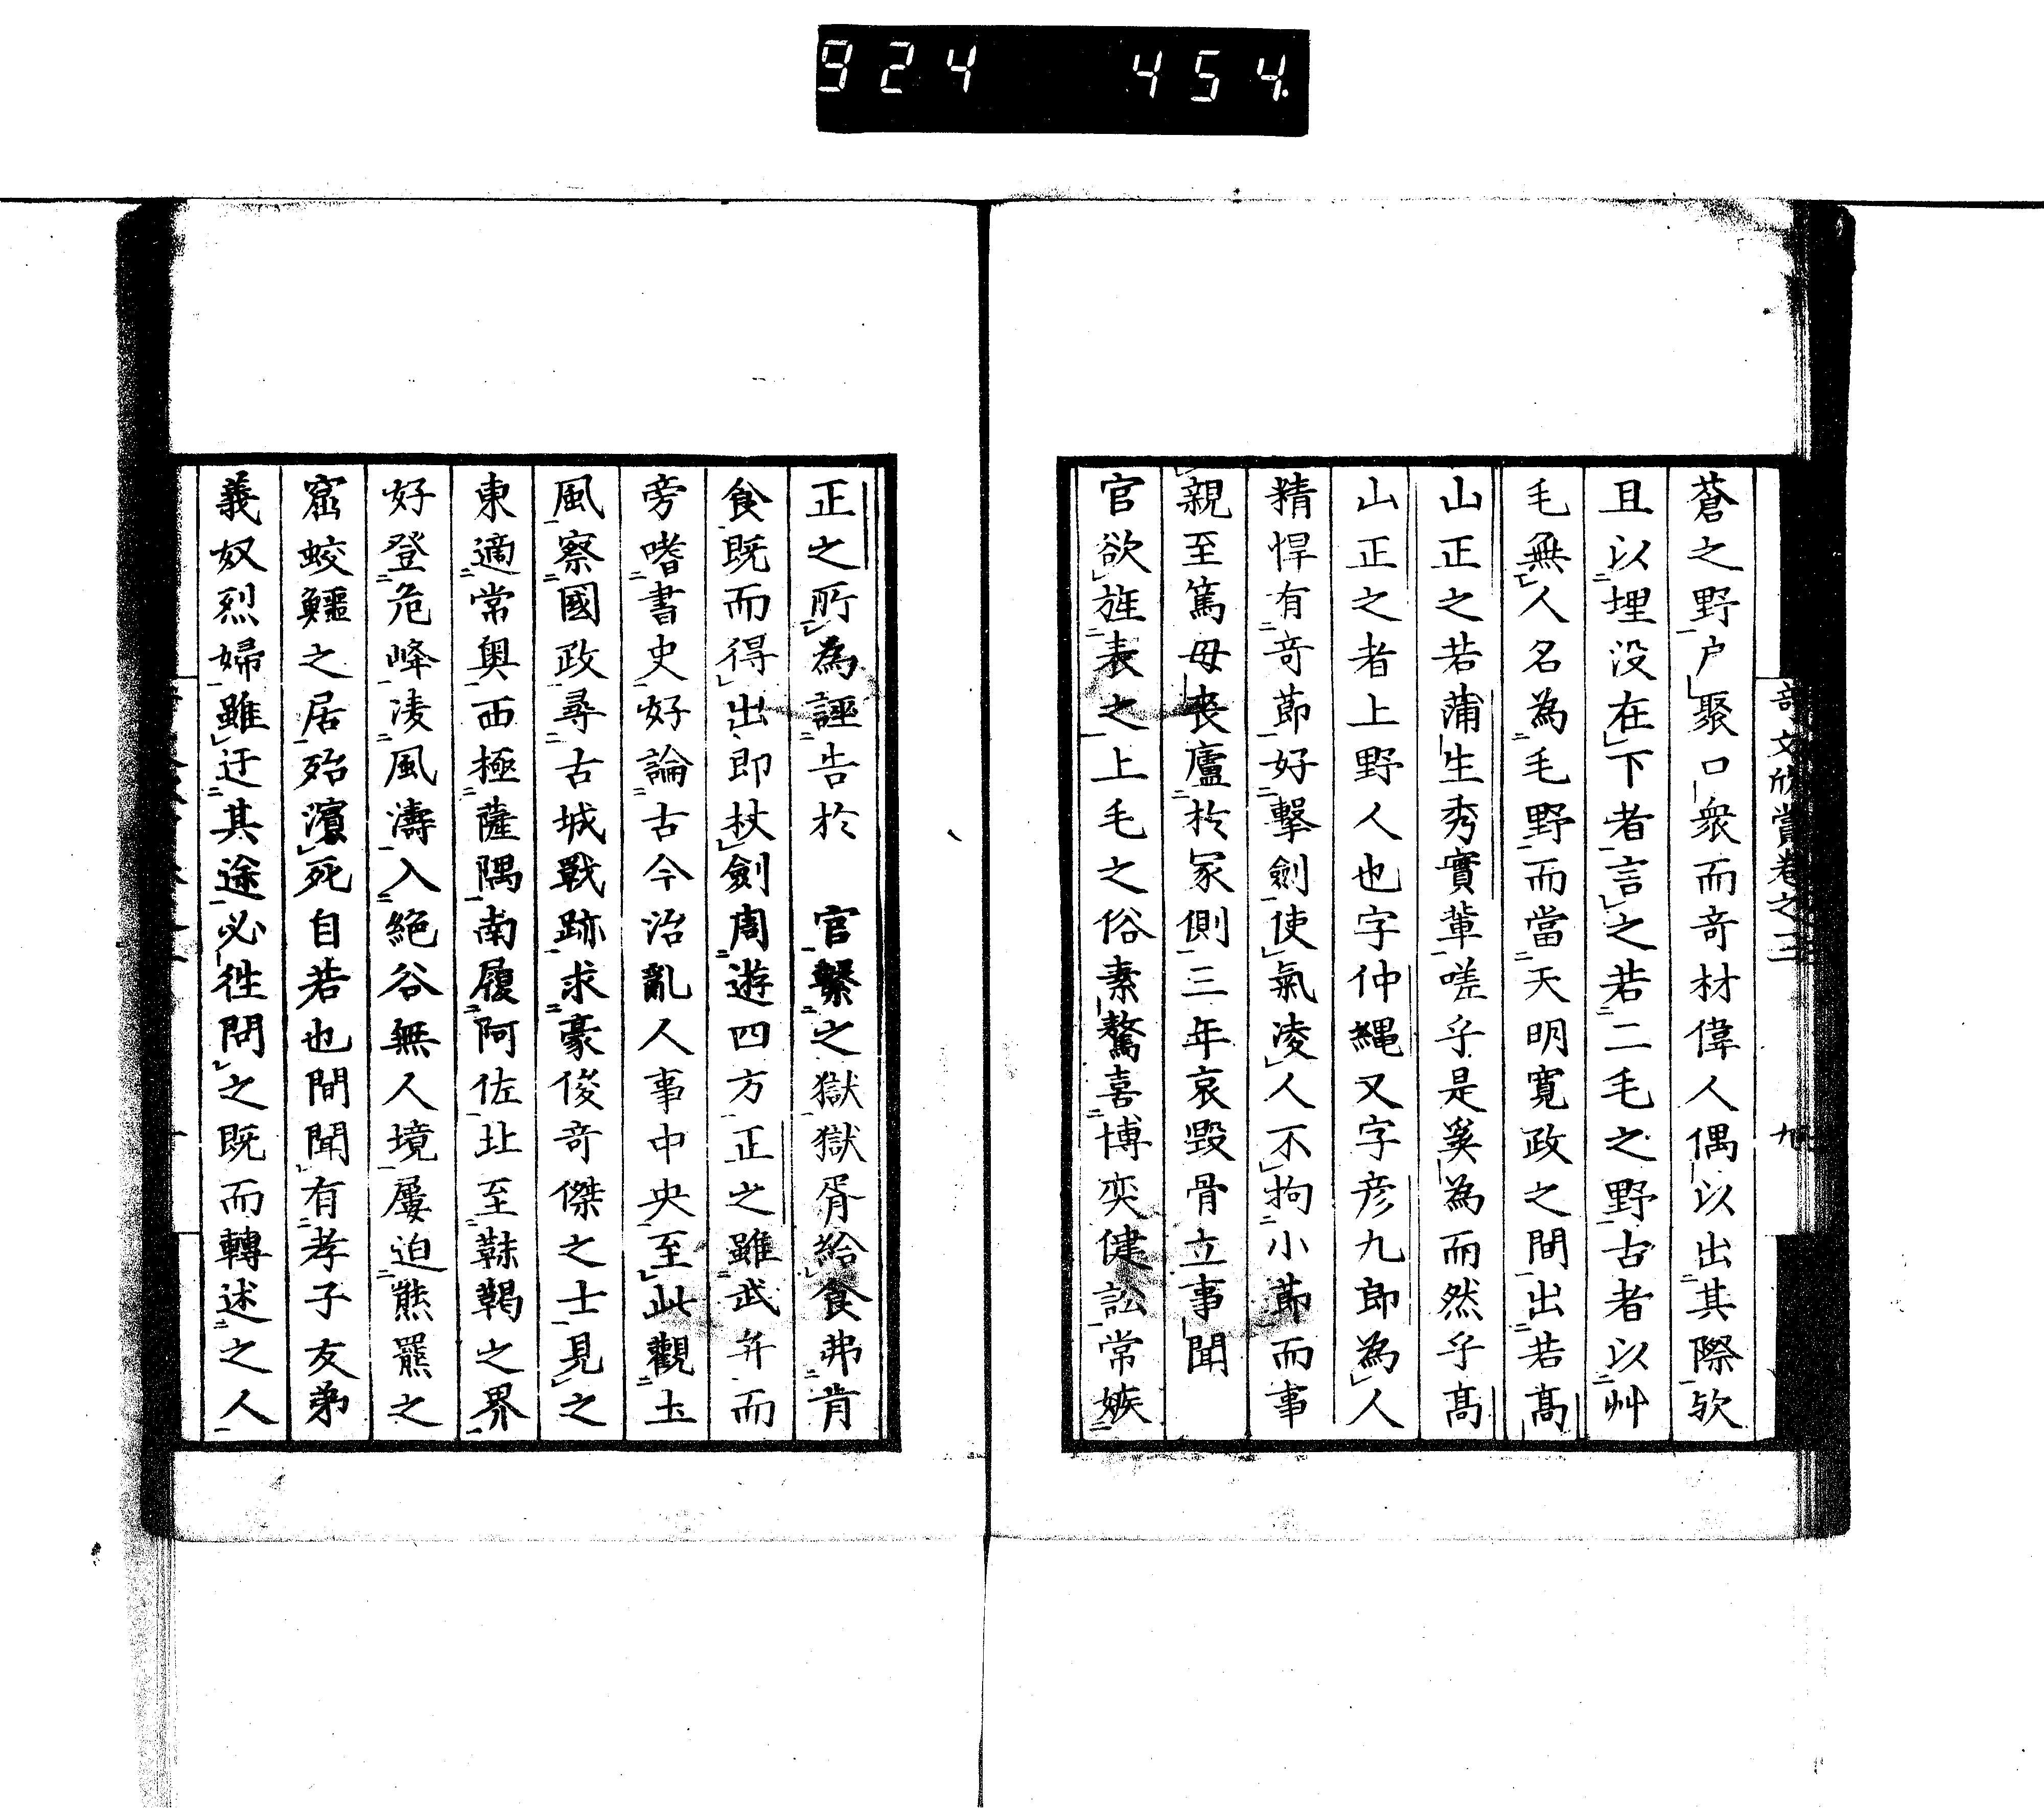 924 454
奇文欣賞卷之二 九
蒼之野戸聚口衆而竒材偉人偶以出其際欤
且以埋没在下者言之若二毛之野古者以艸
毛無人名為毛野而當天明寛政之間出若高
山正之若蒲生秀實輩嗟乎是奚為而然乎高
山正之者上野人也字仲縄又字彦九郎為人
精悍有竒節好擊劍使氣凌人不拘小節而事
親至篤母喪廬於冢側三年哀毀骨立事聞
官欲旌表之上毛之俗素鶩喜博奕健訟常嫉
正之所為誣告於 官繫之獄獄胥給食弗肯
食既而得出即杖劍周遊四方正之雖武弁而
旁嗜書史好論古今治亂人事中央至此觀土
風察國政尋古城戰跡求豪俊竒傑之士見之
東適常奥西極薩隅南履阿佐北至靺鞨之界
好登危峰凌風濤入絶谷無人境屢迫熊羆之
窟蛟鱷之居殆瀕死自若也間聞有孝子友弟
義奴烈婦雖迂其途必徃問之既而轉述之人